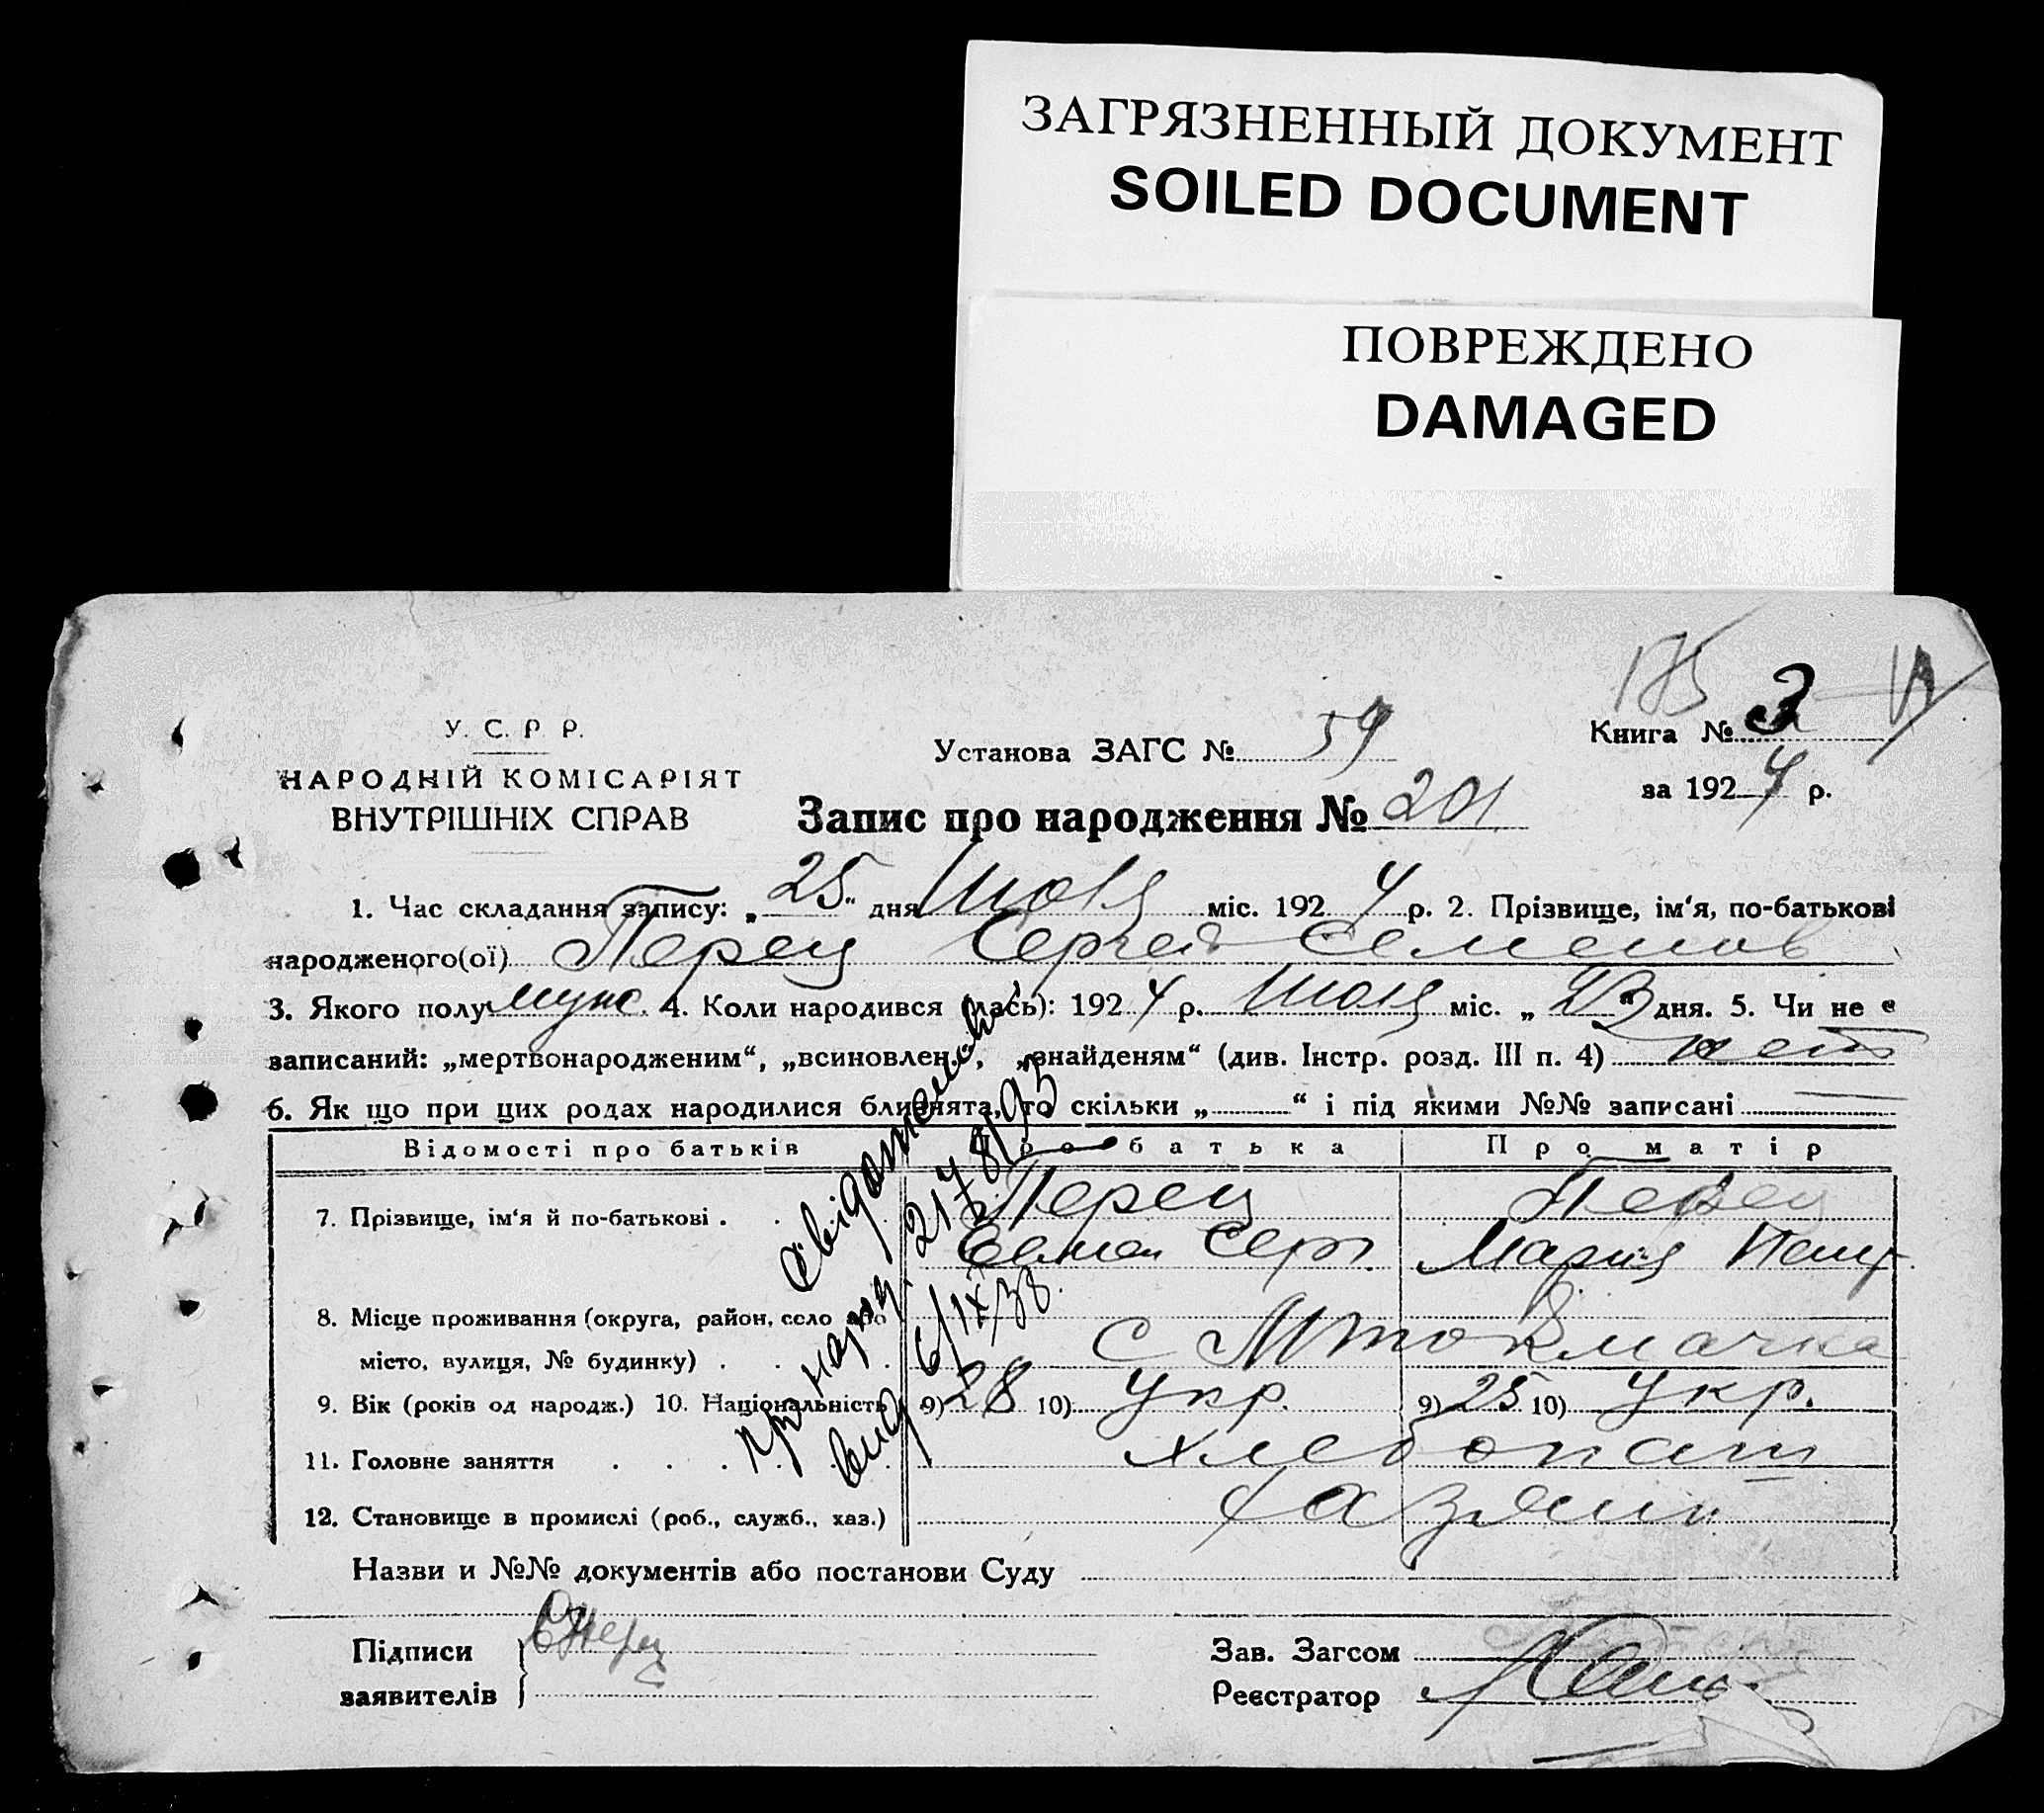 ЗАГРЯЗНЕННЫЙ ДОКУМЕНТ
SOILED DOCUMENT
ПОВРЕЖДЕНО
DAMAGED
У. С. Р. Р.
НАРОДНІЙ КОМІСАРІЯТ
ВНУТРІШНІХ СПРАВ
Установа ЗАГС № 59
Книга № 3
за 1924 р.
Запис про народження № 201
1. Час складання запису: „25“ дня Июля міс. 1924 р. 2. Прізвище, ім‘я, по-батькові
народженого(ої) Перец Сергей Семенов
3. Якого полу муж. 4. Коли народився (лась): 1924 р. Июля міс. „23“ дня. 5. Чи не є
записаний: „мертвонародженим“, „всиновлен.“, „знайденям“ (див. Інстр. розд. III п. 4) нет
6. Як що при цих родах народилися близнята, то скільки „ “ і під якими №№ записані
Відомості про батьків Про батька Про матір
7. Прізвище, ім‘я й по-батькові . Перец Перец
Семен Серг. Мария
8. Місце проживання (округа, район, село або
місто, вулиця, № будинку) . с М Токмачка
9. Вік (років од народж.) 10. Національність 9) 28 10) Укр. 9) 25 10) Укр.
11. Головне заняття . . . хлебопаш
12. Становище в промислі (роб., служб., хаз.) хазяин
свідотство
про народ. 2178195
вид 6/IX 38.
Назви и №№ документів або постанови Суду
Підписи
заявителів
СПерец
Зав. Загсом
Реєстратор